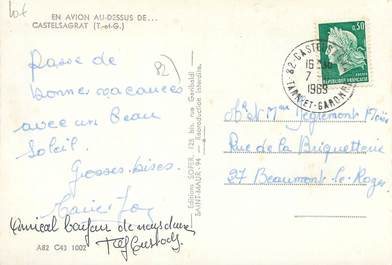 Lot
EN AVION AU-DESSUS DE...
CASTELSAGRAT (T.-et-G.)
82
Passe de
bonnes vacances
avec un beau
soleil.
Grosses bises.
Amical de
A82 C43 1002
Editions SOFER, 125 bis, rue Garibaldi
SAINT-MAUR-94 — Reproduction interdite.
82-CASTELSAGRAT
16
7
1969
TARN-ET-GARONNE
0,30
REPUBLIQUE FRANÇAISE
POSTES
Mr et Mme Degremont
Rue de la Briquetterie
27 Beaumont-le-Roger